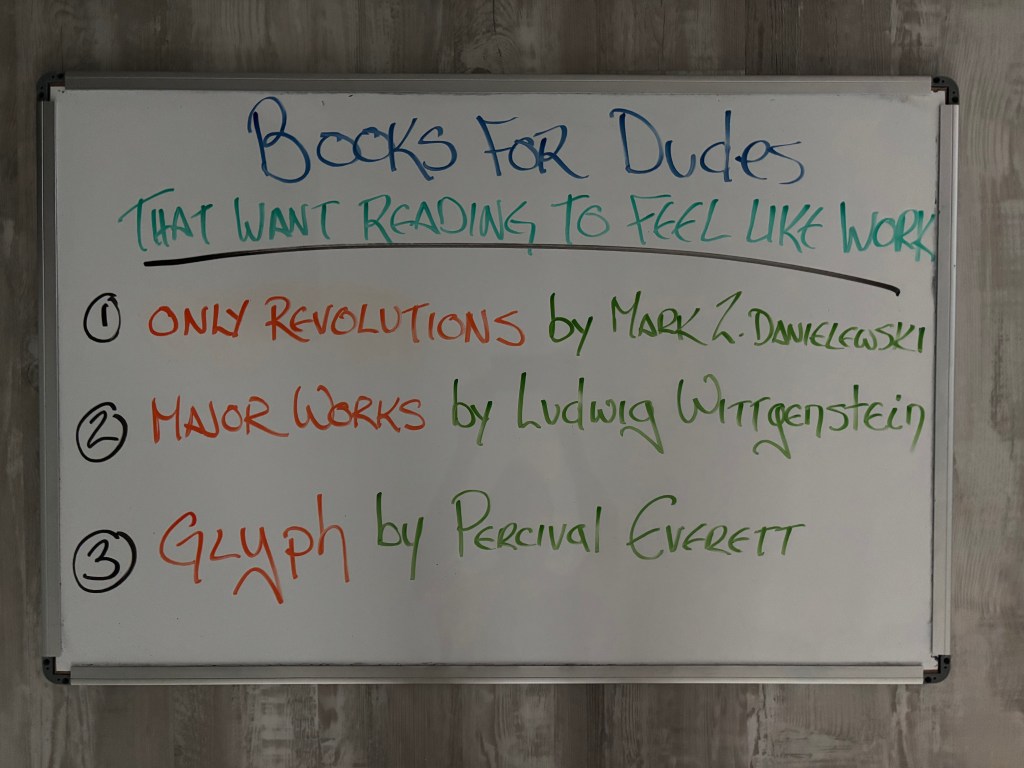 Books For Dudes
THAT WANT READING TO FEEL LIKE WORK
1 ONLY REVOLUTIONS by MARK Z. DANIELEWSKI
2 MAJOR WORKS by Ludwig WITTgenstein
3 GLyph by PERCIVAl EVERETT